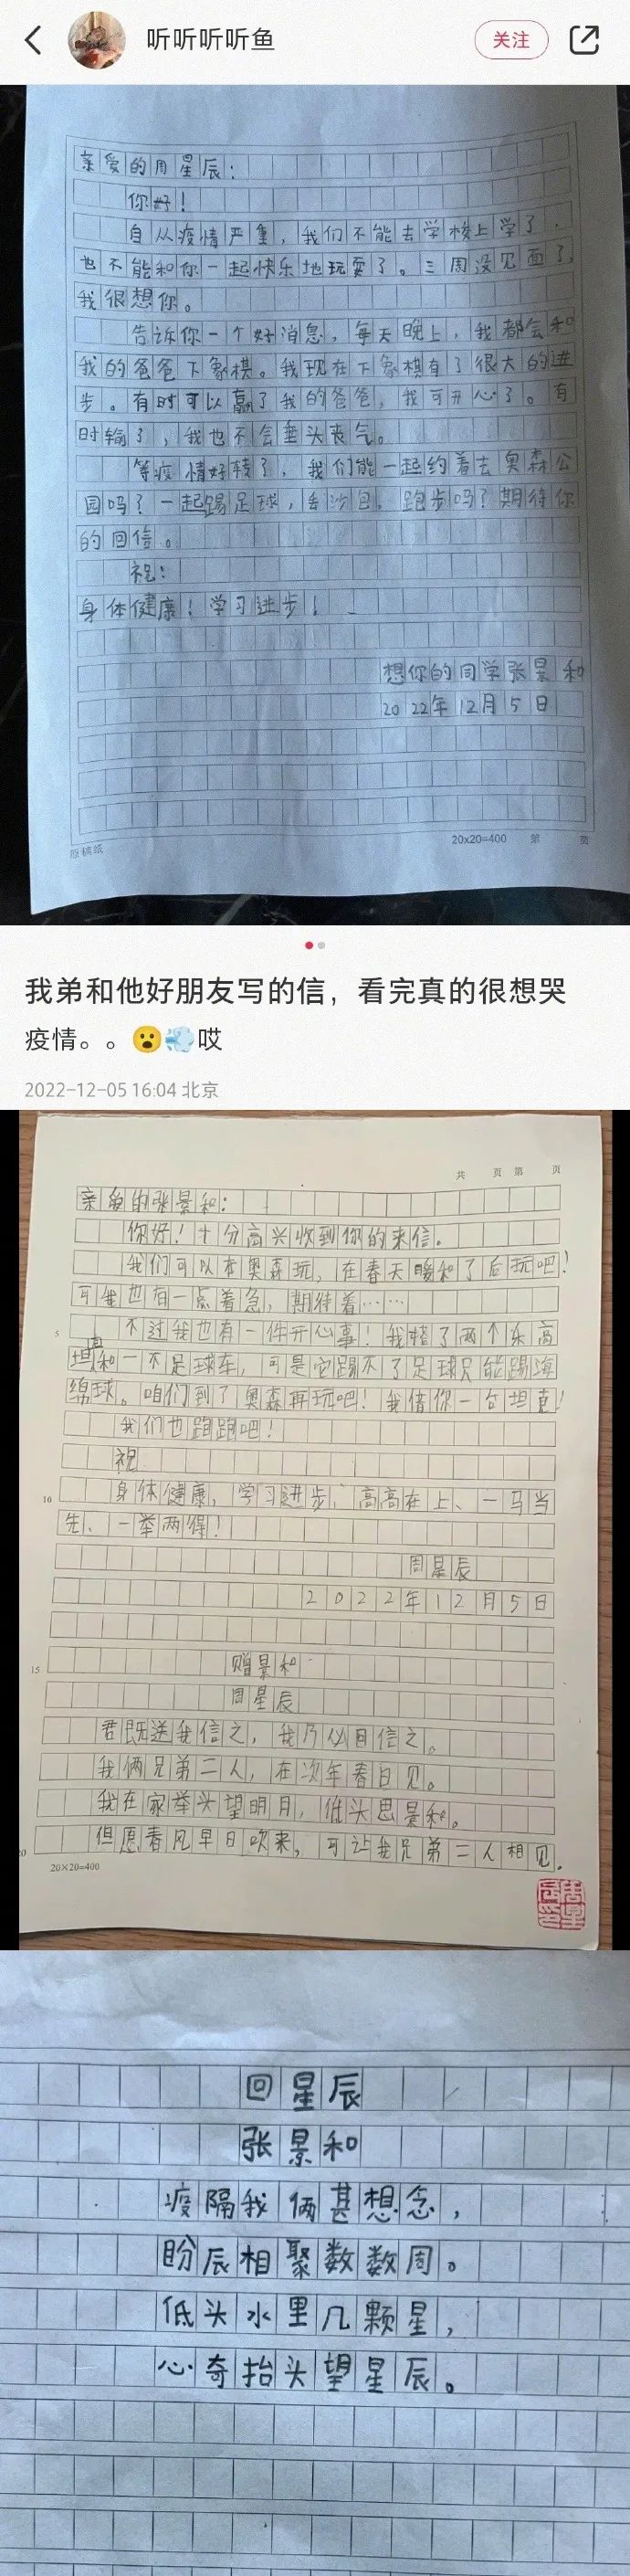 听听听听鱼
关注
亲爱的周星辰：
你好！
自从疫情严重，我们不能去学校上学了，
也不能和你一起快乐地玩耍了。三周没见面了，
我很想你。
告诉你一个好消息，每天晚上，我都会和
我的爸爸下象棋。我现在下象棋有了很大的进
步。有时可以赢了我的爸爸，我可开心了。有
时输了，我也不会垂头丧气。
等疫情好转了，我们能一起约着去奥森公
园吗？一起踢足球，丢沙包，跑步吗？期待你
的回信。
祝：
身体健康！学习进步！
想你的同学张景和
2022年12月5日
原稿纸
20x20=400 第 页
我弟和他好朋友写的信，看完真的很想哭
疫情。。😮💨哎
2022-12-05 16:04 北京
共 页 第 页
亲爱的张景和：
你好！十分高兴收到你的来信。
我们可以在奥森玩，在春天暖和了后玩吧！
可我也有一点着急，期待着……
5
不过我也有一件开心事！我搭了两个乐高
坦克和一个足球车，可是它踢不了足球只能踢海
绵球。咱们到了奥森再玩吧！我借你一台坦克！
我们也跑跑吧！
祝
10
身体健康，学习进步、高高在上、一马当
先、一举两得！
周星辰
2022年12月5日
15
赠景和
周星辰
君既送我信之，我乃必回信之。
我俩兄弟二人，在次年春日见。
我在家举头望明月，低头思景和。
20
但愿春风早日吹来，可让我兄弟二人相见。
20×20=400
回星辰
张景和
疫隔我俩甚想念，
盼辰相聚数数周。
低头水里几颗星，
心奇抬头望星辰。